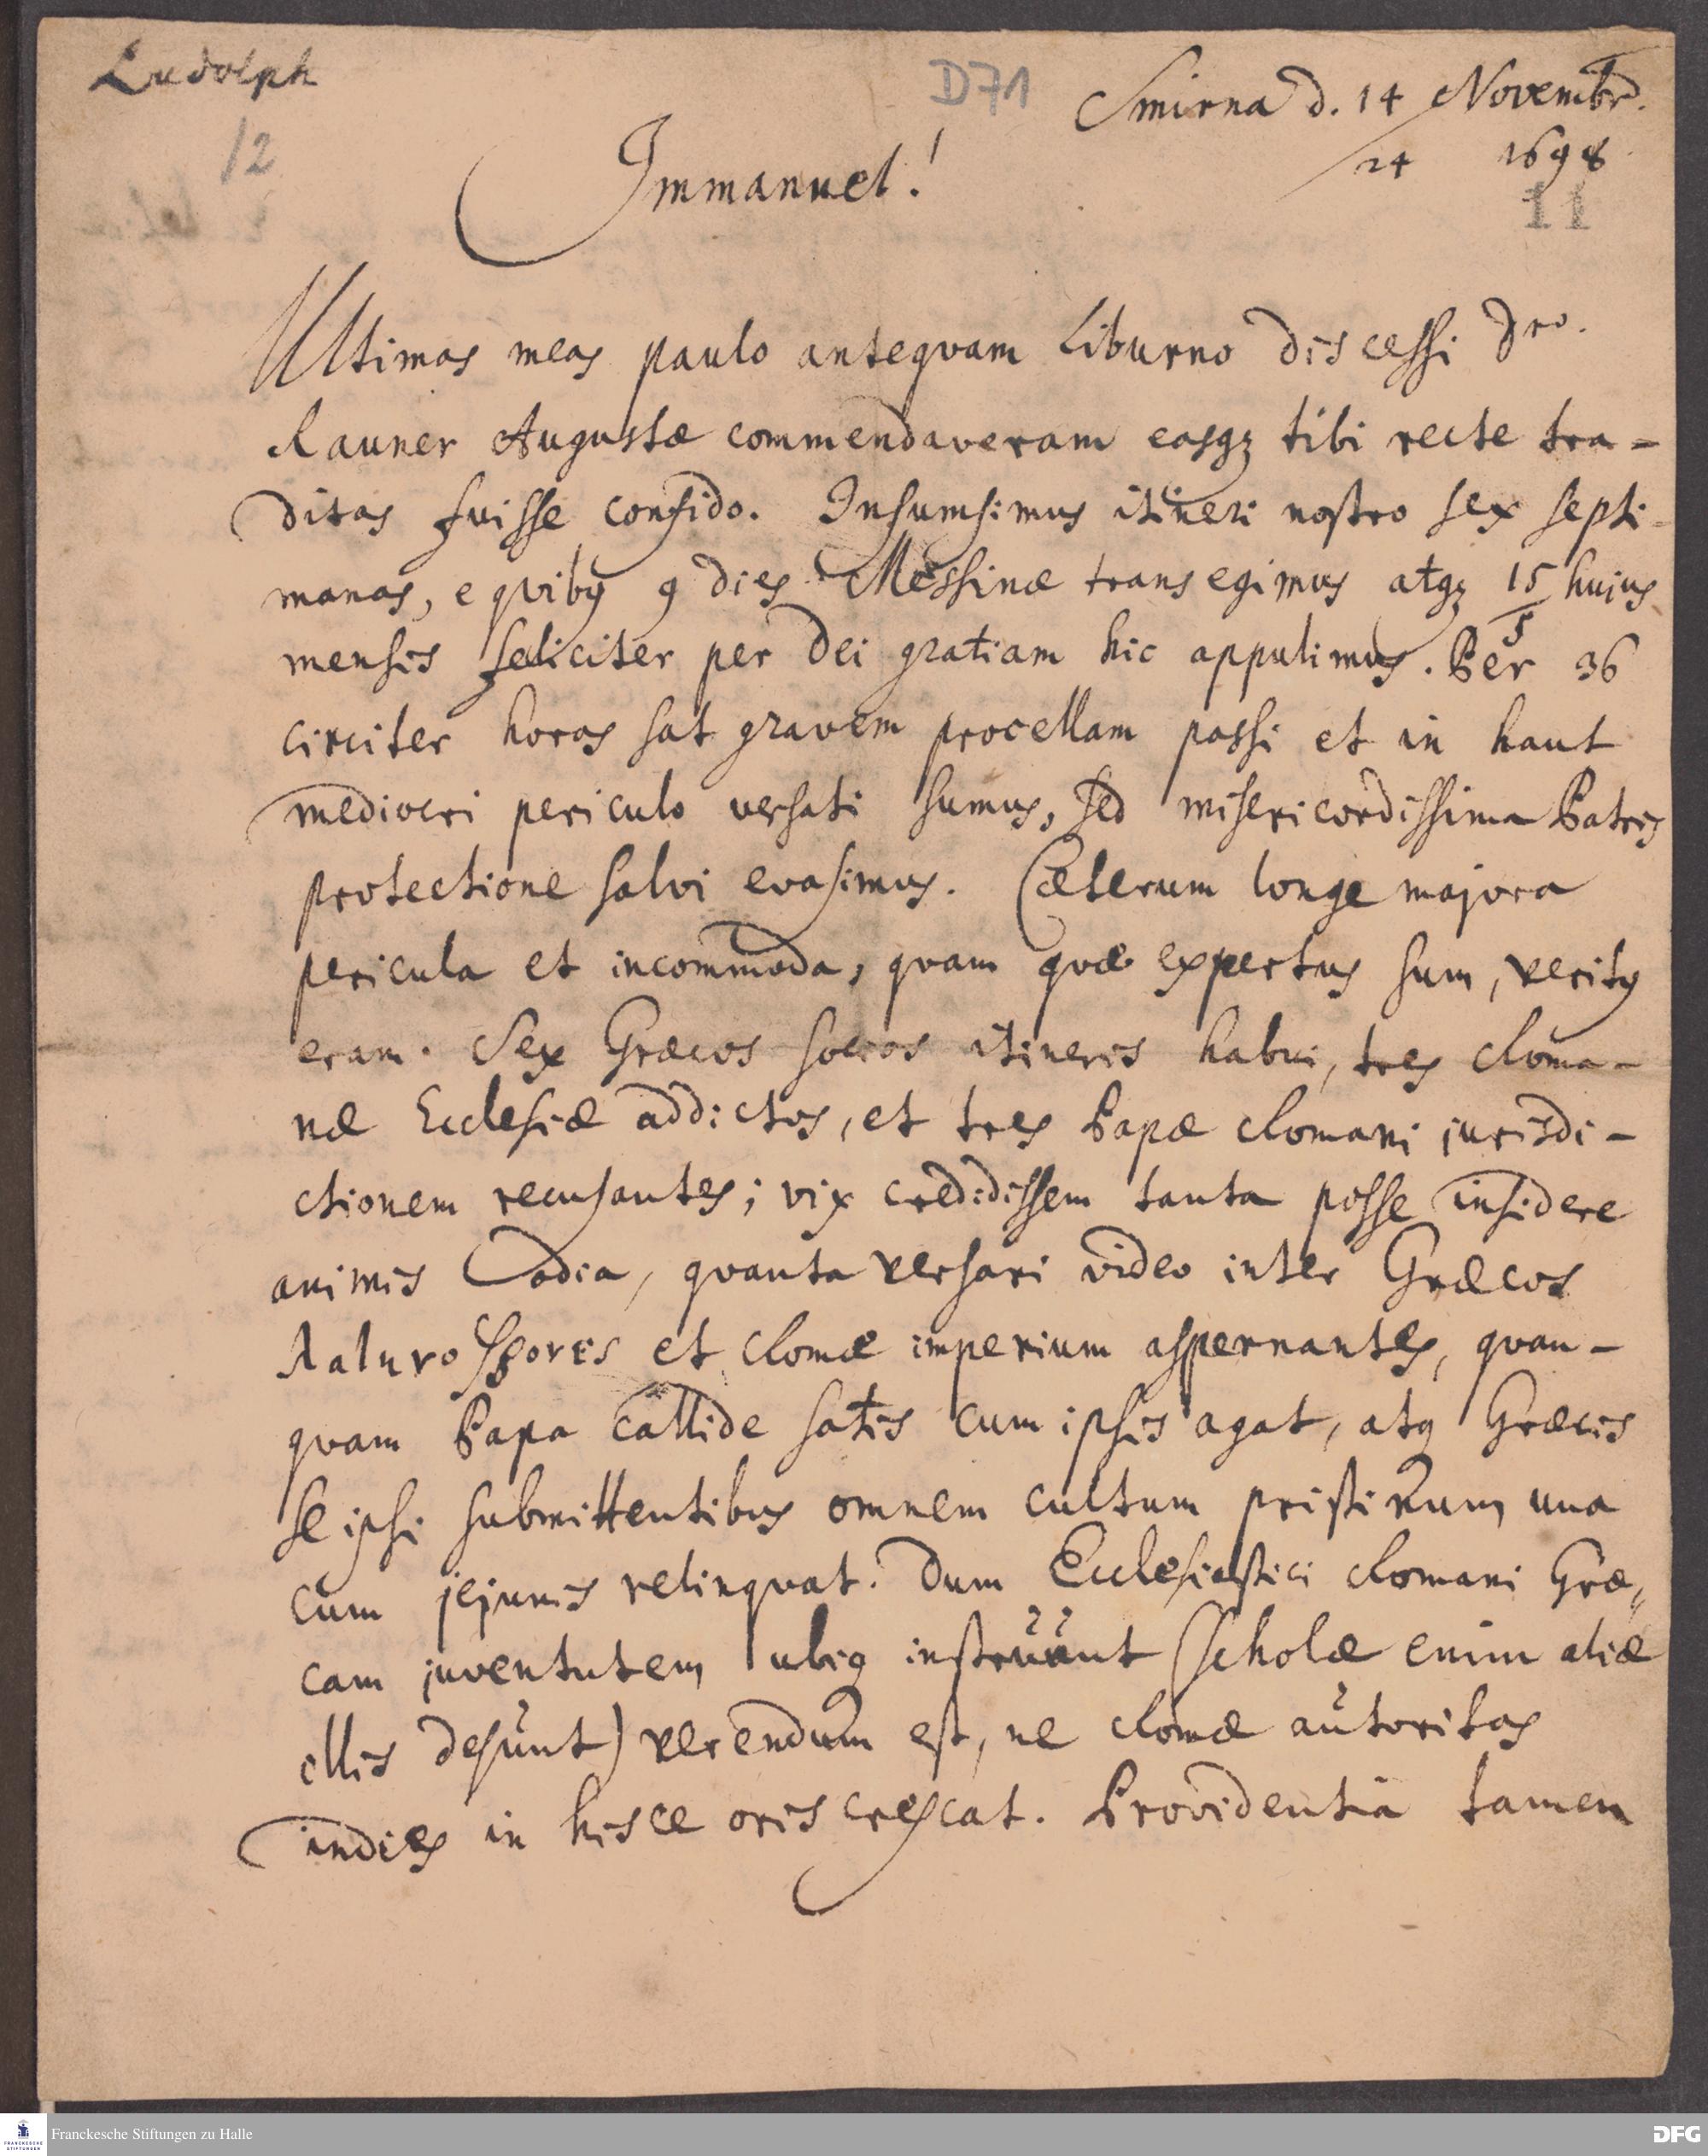 Ludolph
D71
Smirna d. 14 Novembr.
12
24 1698
Immanuel!
11
Ultimas meas paulo anteqvam Liburno discessi Dno.
Rauner Augustæ commendaveram easqz tibi recte tra-
ditas fuisse confido. Insumsimus itineri nostro sex septi-
manas, e qvibus 9 dies Messinæ transegimus atqz 15/5 hujus
mensis feliciter per Dei gratiam hic appulimus. Per 36
circiter horas sat gravem procellam passi et in haut
mediocri periculo versati sumus, sed misericordissima Patris
protectione salvi evasimus. Cæterum longe majora
pericula et incommoda, qvam qvæ expertus sum, veritus
eram. Sex Græcos socios itineris habui, tres Roma-
næ Ecclesiæ addictos, et tres Papæ Romani jurisdi-
ctionem recusantes; vix credidissem tanta posse insidere
animis odia, qvanta versari video inter Græcos
et Romæ imperium aspernantes, qvan-
qvam Papa callide satis cum ipsis agat, atq Græcis
se ipsi submittentibus omnem cultum pristinum, una
cum jejuniis relinqvat. Dum Ecclesiastici Romani Græ-
cam juventutem ubiq instruunt (scholæ enim aliæ
illis desunt) verendum est, ne Romæ autoritas
indies in hisce oris crescat. Providentia tamen
Franckesche Stiftungen zu Halle
DFG